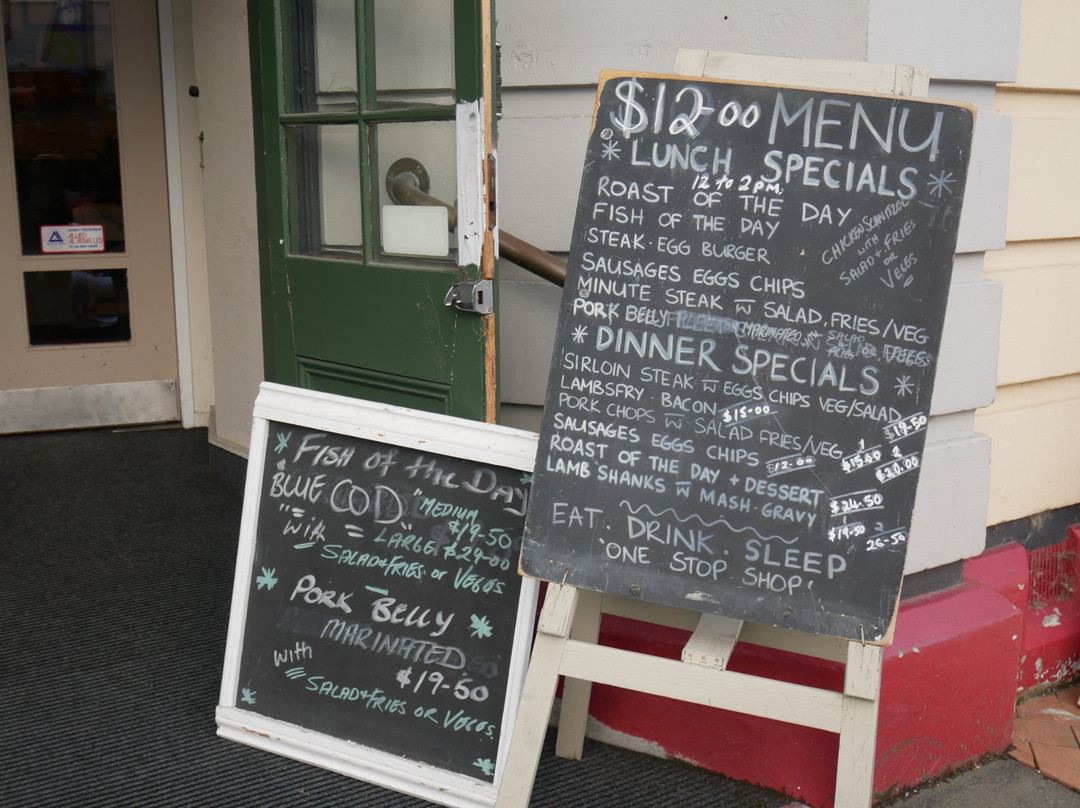 $12-00 MENU
* LUNCH SPECIALS *
12 to 2 PM.
ROAST OF THE DAY
FISH OF THE DAY
STEAK·EGG BURGER
SAUSAGES EGGS CHIPS
MINUTE STEAK W SALAD, FRIES/VEG
PORK BELLY MARINATED
CHICKEN SCHNITZEL
WITH
SALAD + FRIES
OR
VEGES
* DINNER SPECIALS *
SIRLOIN STEAK W EGGS CHIPS VEG/SALAD $19-50
LAMBSFRY BACON $15-00
PORK CHOPS W SALAD FRIES/VEG 1 $15.00 2 $20.00
SAUSAGES EGGS CHIPS 12-00
ROAST OF THE DAY + DESSERT $24-50
LAMB SHANKS W MASH·GRAVY 1 $19-50 2 26-50
EAT· DRINK· SLEEP
'ONE STOP SHOP'
FISH OF the DAY
"BLUE COD" MEDIUM $19-50
"with LARGE $29-00
SALAD+FRIES OR VEGES
PORK BELLY
MARINATED
$19-50
with
SALAD+FRIES OR VEGES
ALLIED
ALARMS LTD